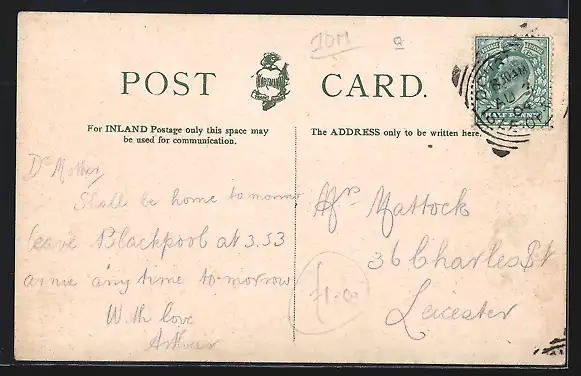 10M
POST CARD.
HALFPENNY
For INLAND Postage only this space may
be used for communication.
The ADDRESS only to be written here.
Dr Mother
Shall be home tomorrow
leave Blackpool at 3.53
arrive any time to-morrow
With love
Arthur
Mrs Mattock
36 Charles St
Leicester
£1.00